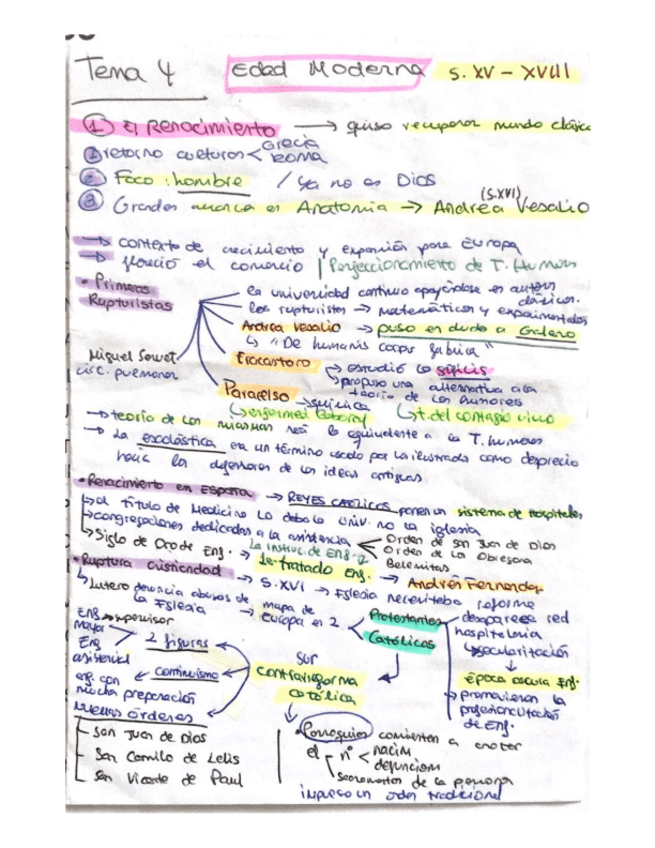 Tema 4 Edad Moderna S. XV - XVIII
① El Renacimiento → quiso recuperar mundo clásico
① retorno culturas < Grecia Roma
② Foco: hombre / ya no es Dios
③ Grandes avances en Anatomía → Andrea Vesalio (S.XVI)
→ contexto de crecimiento y expansión para Europa
→ floreció el comercio | Perfeccionamiento de T. Humores
• Primeros Rupturistas
la universidad continuo apoyándose en autores clásicos.
los rupturistas → matemáticos y experimentales
Andrea Vesalio → puso en duda a Galeno
↳ "De humanis corpor fabrica"
Miguel Servet circ. pulmonar
Fracastoro → estudió la sífilis
→ propuso una alternativa a la teoría de los humores
Paracelso → química
↳ enfermed laboral ↳ t. del contagio vivo
→ teoría de los miasmas será lo equivalente a la T. humores
→ La escolástica era un término usado por la ilustrada como desprecio
hacia los defensores de las ideas antiguas
• Renacimiento en España → REYES CATÓLICOS ponen un sistema de hospitales
↳ el título de Medicina lo daba la univ. no la iglesia
↳ congregaciones dedicadas a la asistencia < Orden de San Juan de Dios
Orden de los Obregones
Belemitas
↳ Siglo de Oro de Enf. → La instruc. de Enf.
1er tratado Enf. → Andrés Fernández
• Ruptura cristiandad → S. XVI → Iglesia necesitaba reforma
↳ Lutero denuncia abusos de la Iglesia → mapa de Europa en 2 < Protestantes
Católicos
desaparece red hospitalaria
↳ secularización
↓
época oscura Enf.
→ promovieron la profesionalización de Enf.
Enf. supervisor mayor
Enf. asistencial
2 figuras
enf. con mucha preparación ← Continuismo
sur
contrarreforma católica
nuevas órdenes
- San Juan de Dios
- San Camilo de Lelis
- San Vicente de Paul
• Parroquias comienzan a anotar
el nº < nacim
defunciones
sacramentos de la
impuso un orden tradicional